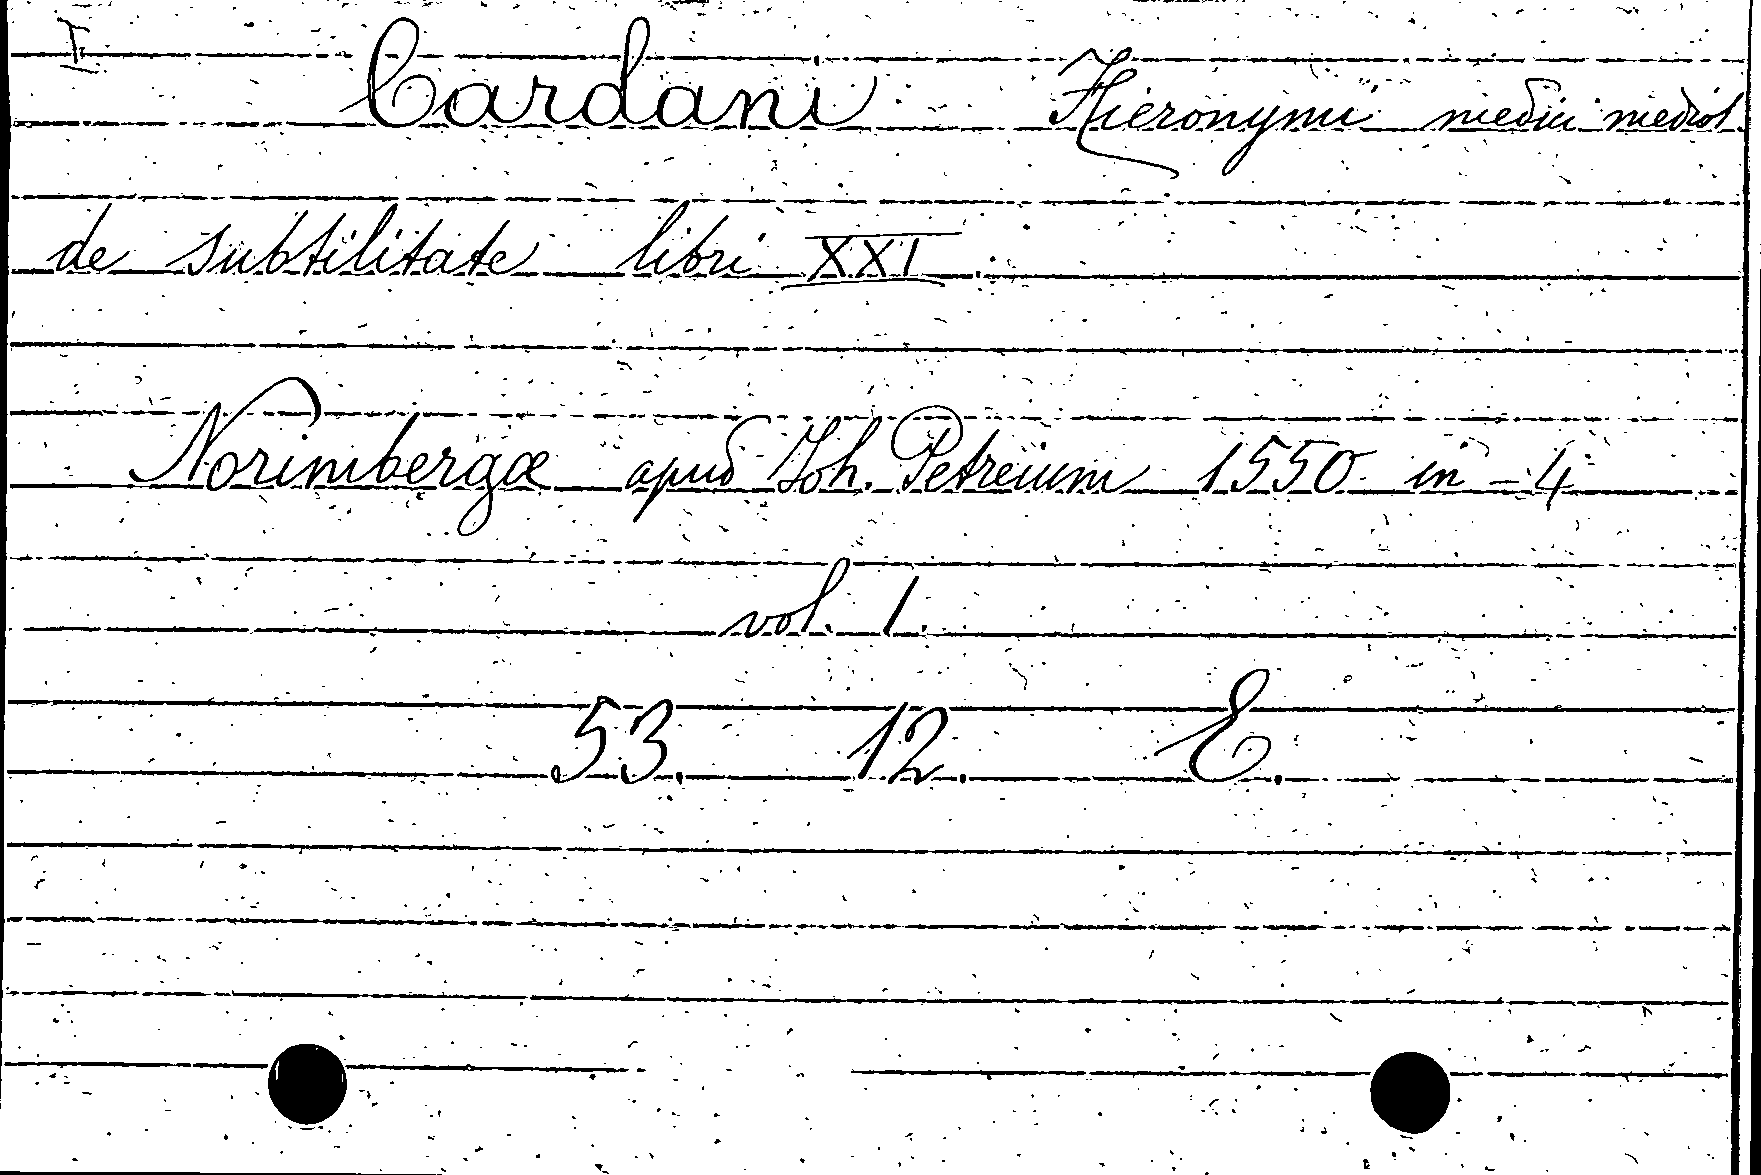 I
Cardani Hieronymi medici mediol.
de subtilitate libri XXI.
Norimbergæ apud Joh. Petreium 1550 in-4
vol. 1.
53. 12. E.